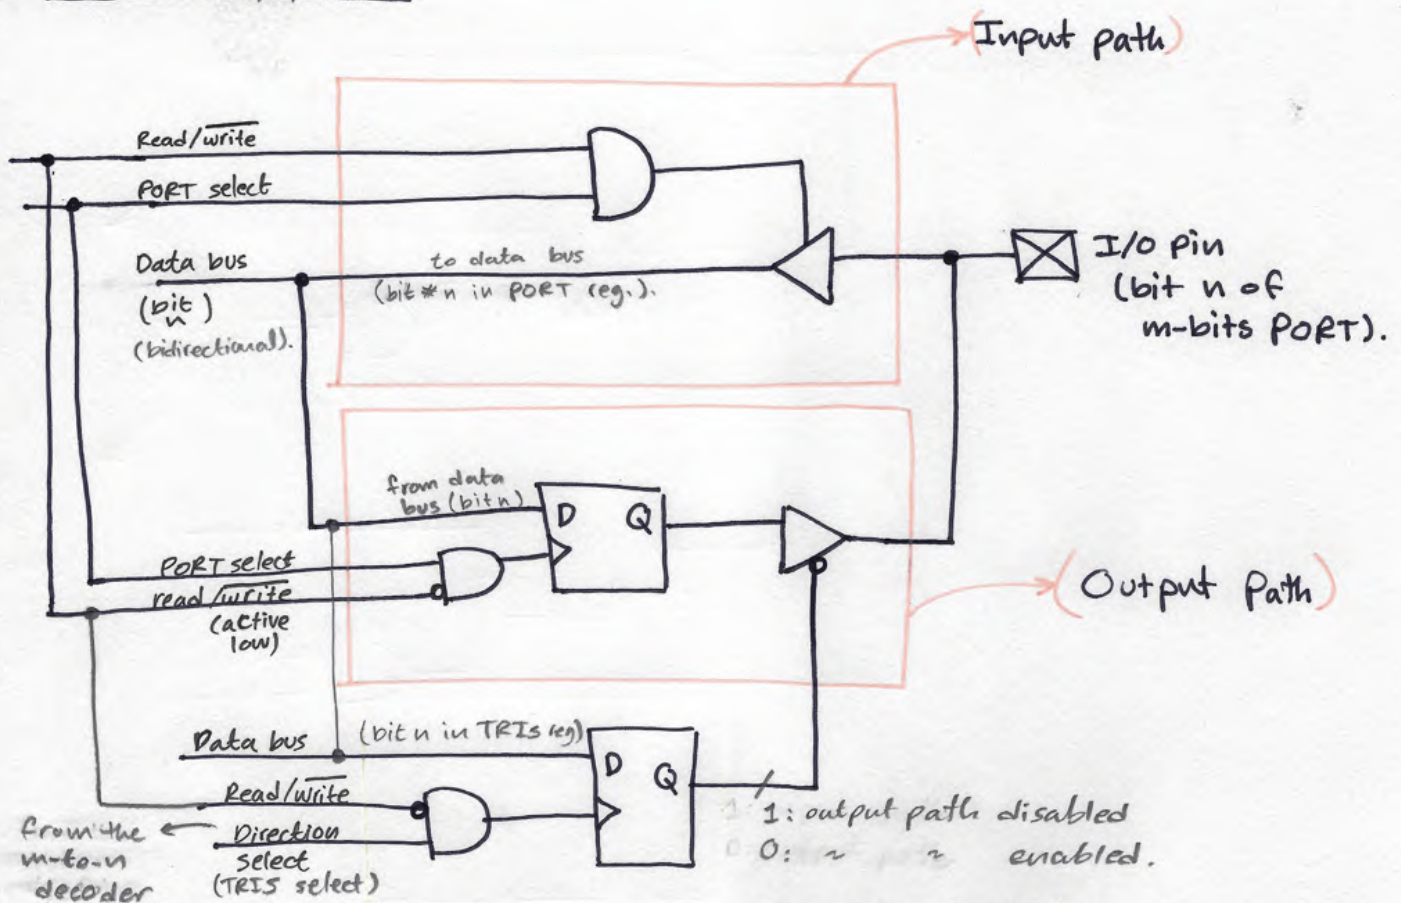 (Input path)
Read/write
PORT select
Data bus
(bit n)
(bidirectional).
to data bus
(bit *n in PORT reg.).
I/O pin
(bit n of
m-bits PORT).
from data
bus (bit n)
D Q
PORT select
read/write
(active
low)
(Output Path)
Data bus
(bit n in TRIS reg)
D Q
Read/write
Direction
select
(TRIS select)
from the
m-to-n
decoder
1: output path disabled
0: ~ ~ enabled.